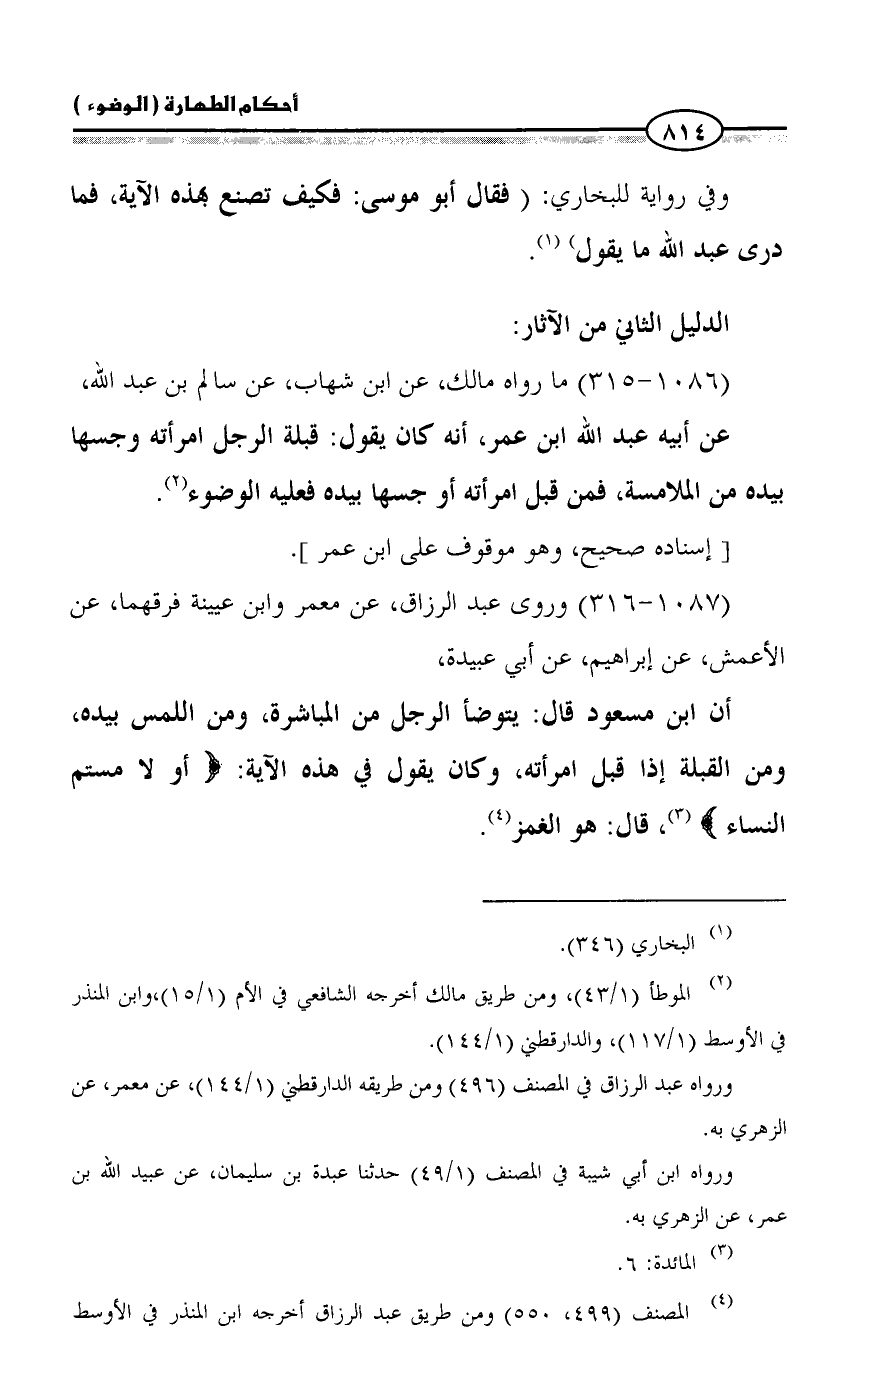 أحكام الطهارة ( الوضوء )
٨١٤
وفي رواية للبخاري: ( فقال أبو موسى: فكيف تصنع بهذه الآية، فما
درى عبد الله ما يقول) (١).
الدليل الثاني من الآثار:
(١٠٨٦-٣١٥) ما رواه مالك، عن ابن شهاب، عن سالم بن عبد الله،
عن أبيه عبد الله ابن عمر، أنه كان يقول: قبلة الرجل امرأته وجسها
بيده من الملامسة، فمن قبل امرأته أو جسها بيده فعليه الوضوء(٢).
[ إسناده صحيح، وهو موقوف على ابن عمر ].
(١٠٨٧-٣١٦) وروى عبد الرزاق، عن معمر وابن عيينة فرقهما، عن
الأعمش، عن إبراهيم، عن أبي عبيدة،
أن ابن مسعود قال: يتوضأ الرجل من المباشرة، ومن اللمس بيده،
ومن القبلة إذا قبل امرأته، وكان يقول في هذه الآية: ﴿ أو لا مستم
النساء ﴾ (٣)، قال: هو الغمز(٤).
(١) البخاري (٣٤٦).
(٢) الموطأ (٤٣/١)، ومن طريق مالك أخرجه الشافعي في الأم (١٥/١)،وابن المنذر
في الأوسط (١١٧/١)، والدارقطني (١٤٤/١).
ورواه عبد الرزاق في المصنف (٤٩٦) ومن طريقه الدارقطني (١٤٤/١)، عن معمر، عن
الزهري به.
ورواه ابن أبي شيبة في المصنف (٤٩/١) حدثنا عبدة بن سليمان، عن عبيد الله بن
عمر، عن الزهري به.
(٣) المائدة: ٦.
(٤) المصنف (٤٩٩، ٥٥٠) ومن طريق عبد الرزاق أخرجه ابن المنذر في الأوسط